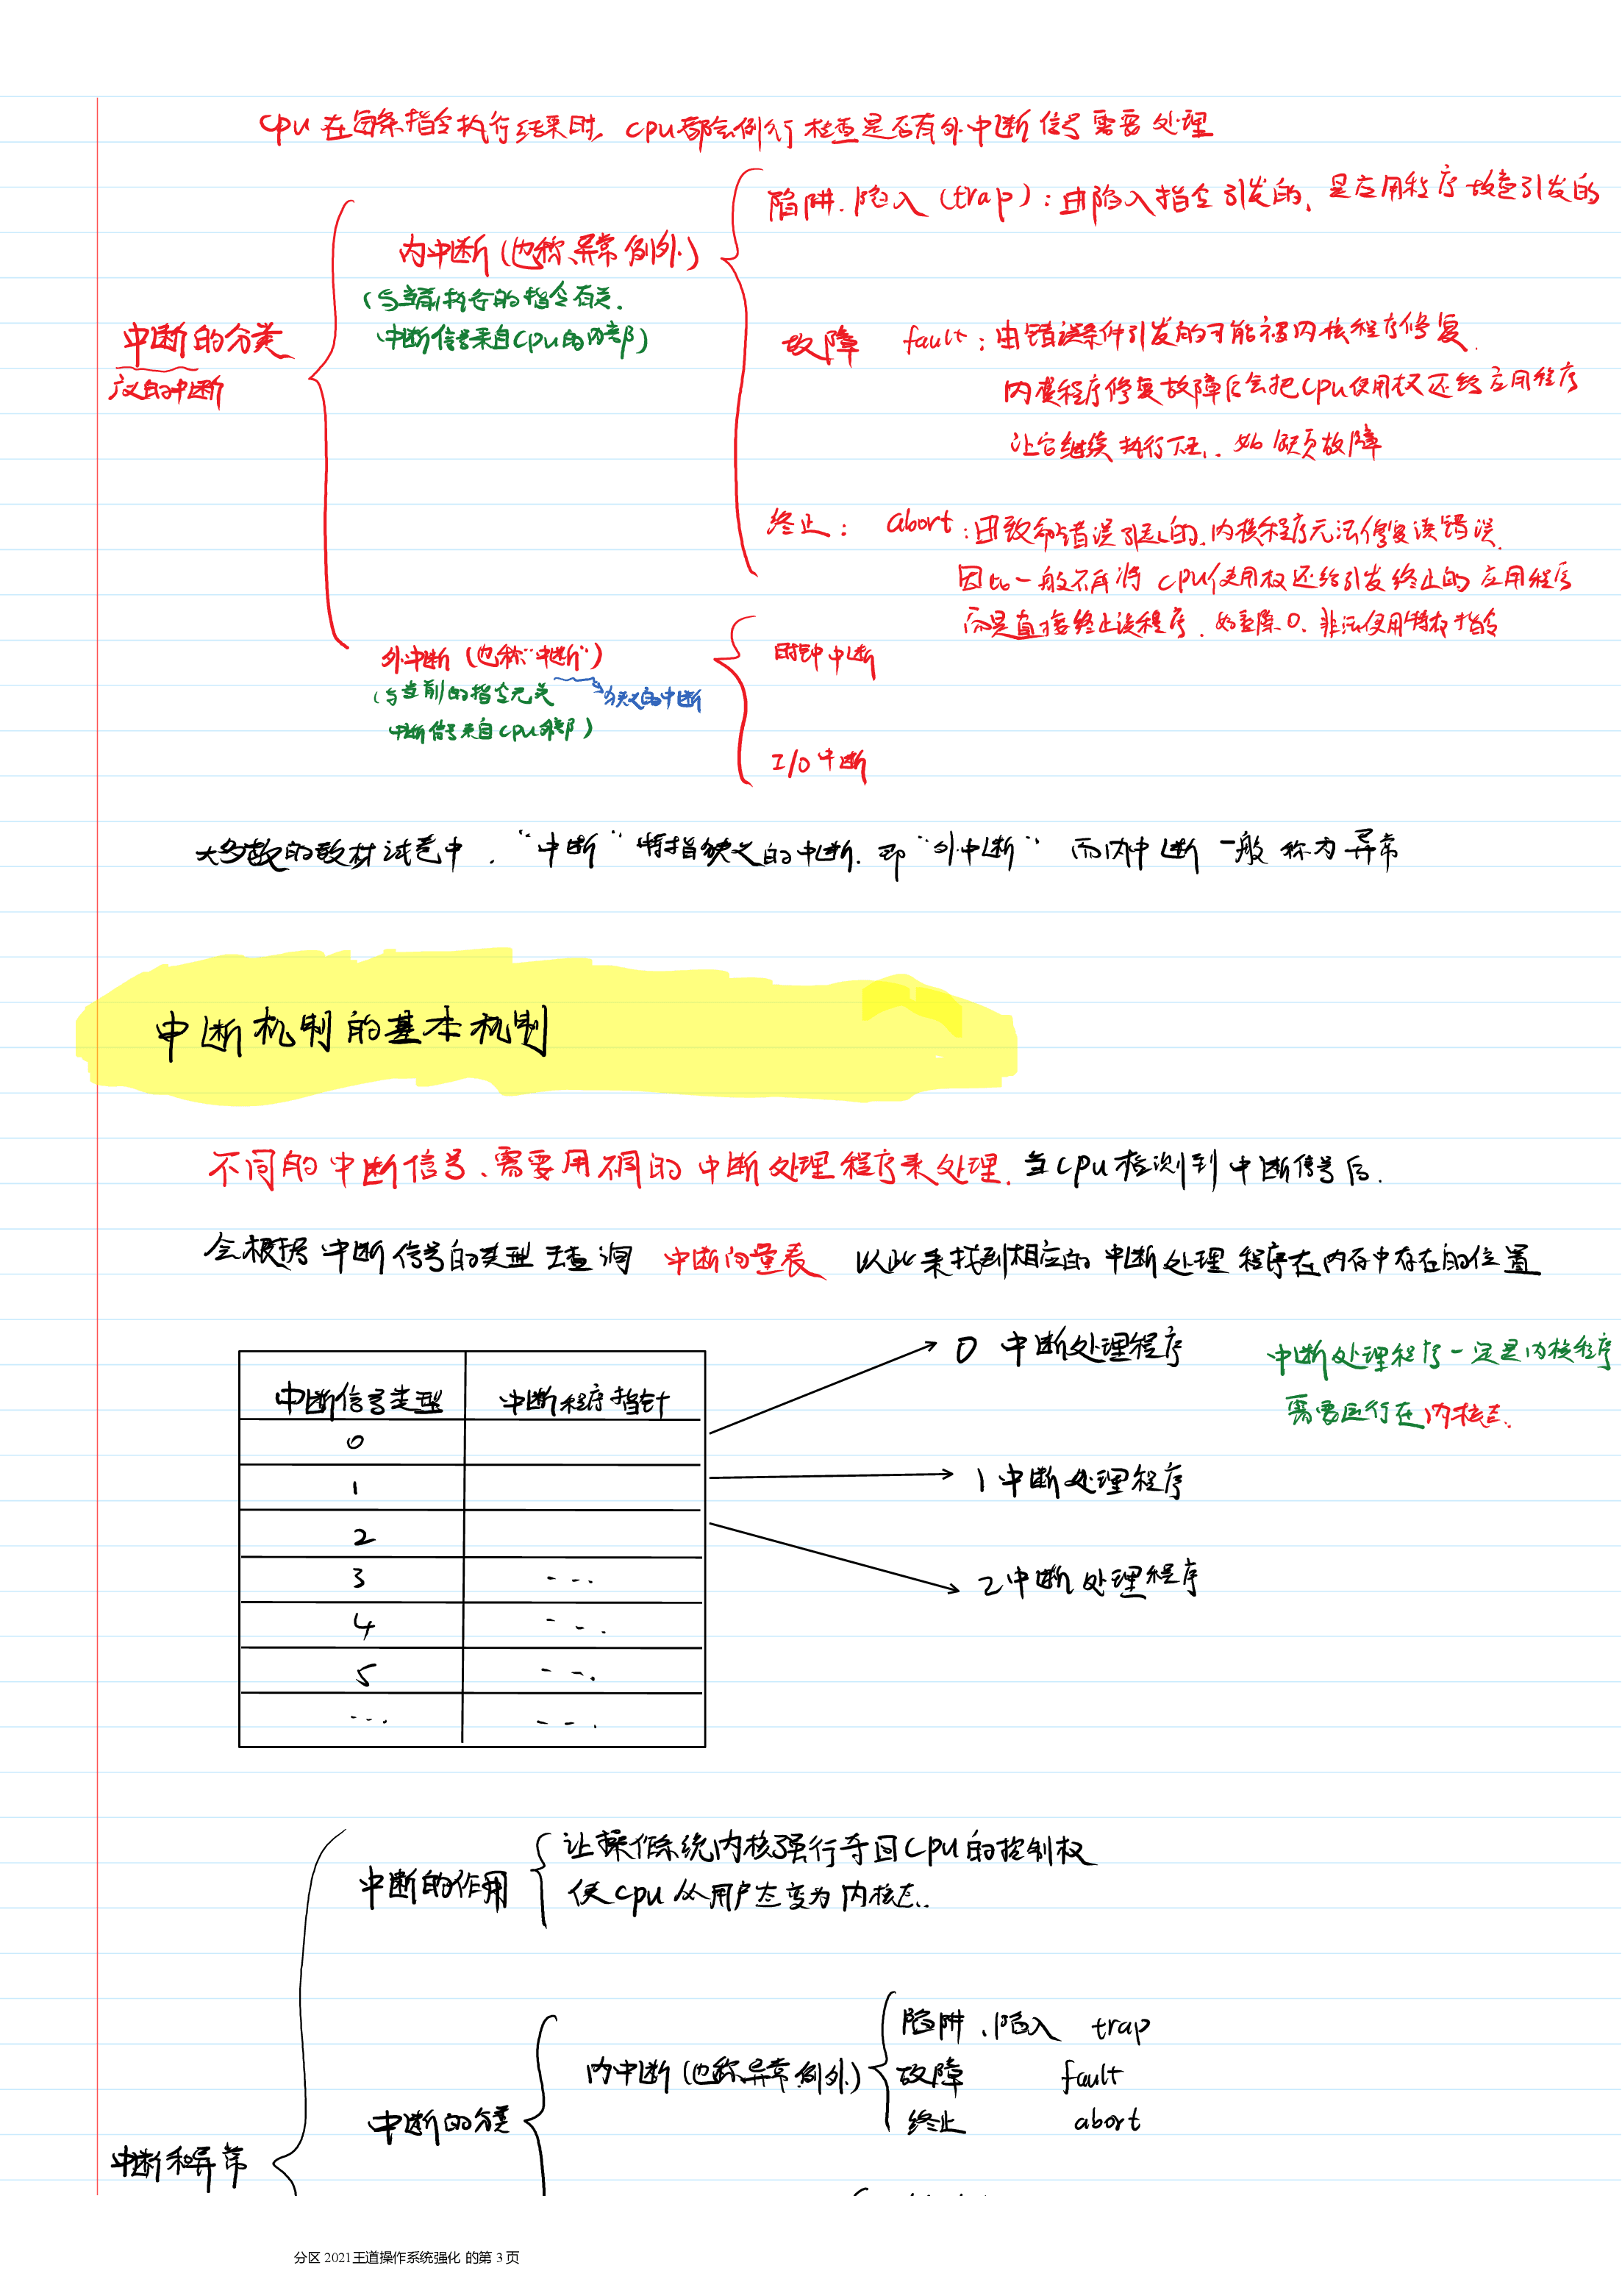 CPU 在每条指令执行结束时, CPU都会例行检查是否有外中断信号需要处理
陷阱、陷入 (trap) : 由陷入指令引发的, 是应用程序故意引发的
内中断 (也称、异常 例外)
(与当前执行的指令有关.
中断信号来自CPU的内部)
中断的分类
广义的中断
故障 fault : 由错误条件引发的可能被内核程序修复.
内核程序修复故障后会把CPU使用权还给应用程序
让它继续执行下去. 如 缺页故障
终止 : abort : 由致命错误引起的, 内核程序无法修复该错误.
因此一般不再将 CPU使用权还给引发终止的应用程序
而是直接终止该程序. 如整除0、非法使用特权指令
外中断 (也称"中断")
(与当前的指令无关
狭义的中断
中断信号来自CPU外部)
时钟中断
I/O 中断
大多数的教材试卷中, "中断" 特指狭义的中断. 即 "外中断" 而内中断一般称为异常
中断机制的基本机制
不同的中断信号、需要用不同的中断处理程序来处理. 当CPU检测到中断信号后.
会根据中断信号的类型去查询 中断向量表 以此来找到相应的中断处理程序在内存中存在的位置
中断信号类型 中断程序指针
0
1
2
3 ...
4 ...
5 ...
... ...
0 中断处理程序
1 中断处理程序
2 中断处理程序
中断处理程序一定是内核程序
需要运行在内核态.
中断的作用
让操作系统内核强行夺回CPU的控制权
使CPU从用户态变为内核态..
中断和异常
中断的分类
内中断 (也称异常.例外)
陷阱、陷入 trap
故障 fault
终止 abort
分区 2021王道操作系统强化 的第 3 页